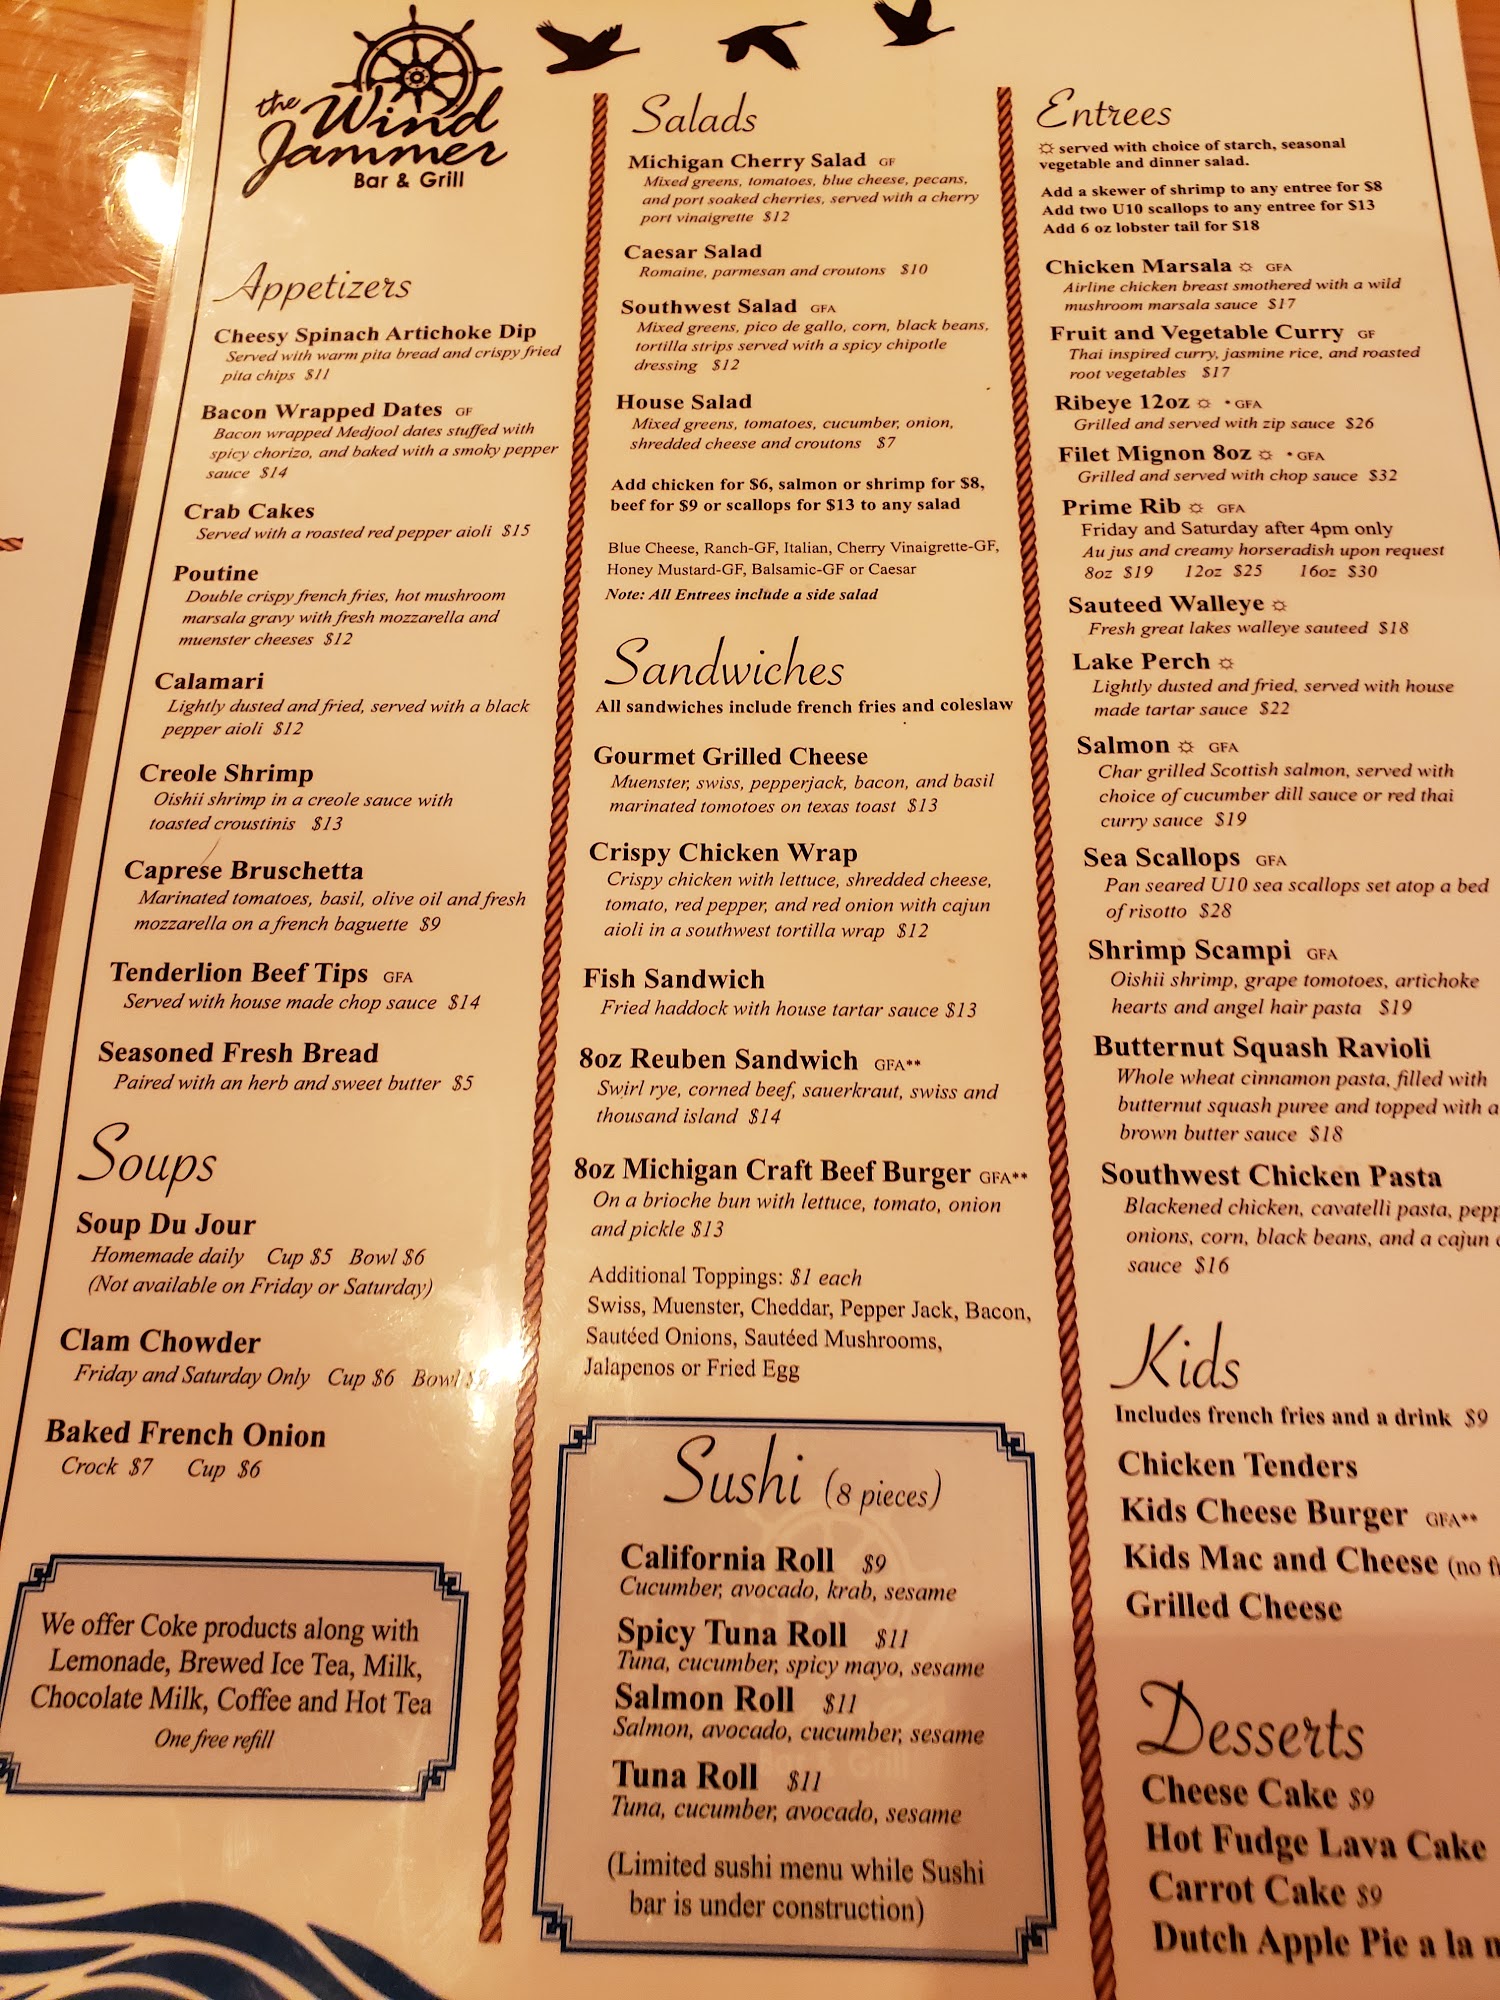 the Wind
Jammer
Bar & Grill
Appetizers
Cheesy Spinach Artichoke Dip
Served with warm pita bread and crispy fried
pita chips $11
Bacon Wrapped Dates GF
Bacon wrapped Medjool dates stuffed with
spicy chorizo, and baked with a smoky pepper
sauce $14
Crab Cakes
Served with a roasted red pepper aioli $15
Poutine
Double crispy french fries, hot mushroom
marsala gravy with fresh mozzarella and
muenster cheeses $12
Calamari
Lightly dusted and fried, served with a black
pepper aioli $12
Creole Shrimp
Oishii shrimp in a creole sauce with
toasted croustinis $13
Caprese Bruschetta
Marinated tomatoes, basil, olive oil and fresh
mozzarella on a french baguette $9
Tenderlion Beef Tips GFA
Served with house made chop sauce $14
Seasoned Fresh Bread
Paired with an herb and sweet butter $5
Soups
Soup Du Jour
Homemade daily Cup $5 Bowl $6
(Not available on Friday or Saturday)
Clam Chowder
Friday and Saturday Only Cup $6 Bowl
Baked French Onion
Crock $7 Cup $6
We offer Coke products along with
Lemonade, Brewed Ice Tea, Milk,
Chocolate Milk, Coffee and Hot Tea
One free refill
Salads
Michigan Cherry Salad GF
Mixed greens, tomatoes, blue cheese, pecans,
and port soaked cherries, served with a cherry
port vinaigrette $12
Caesar Salad
Romaine, parmesan and croutons $10
Southwest Salad GFA
Mixed greens, pico de gallo, corn, black beans,
tortilla strips served with a spicy chipotle
dressing $12
House Salad
Mixed greens, tomatoes, cucumber, onion,
shredded cheese and croutons $7
Add chicken for $6, salmon or shrimp for $8,
beef for $9 or scallops for $13 to any salad
Blue Cheese, Ranch-GF, Italian, Cherry Vinaigrette-GF,
Honey Mustard-GF, Balsamic-GF or Caesar
Note: All Entrees include a side salad
Sandwiches
All sandwiches include french fries and coleslaw
Gourmet Grilled Cheese
Muenster, swiss, pepperjack, bacon, and basil
marinated tomotoes on texas toast $13
Crispy Chicken Wrap
Crispy chicken with lettuce, shredded cheese,
tomato, red pepper, and red onion with cajun
aioli in a southwest tortilla wrap $12
Fish Sandwich
Fried haddock with house tartar sauce $13
8oz Reuben Sandwich GFA**
Swirl rye, corned beef, sauerkraut, swiss and
thousand island $14
8oz Michigan Craft Beef Burger GFA**
On a brioche bun with lettuce, tomato, onion
and pickle $13
Additional Toppings: $1 each
Swiss, Muenster, Cheddar, Pepper Jack, Bacon,
Sautéed Onions, Sautéed Mushrooms,
Jalapenos or Fried Egg
Sushi (8 pieces)
California Roll $9
Cucumber, avocado, krab, sesame
Spicy Tuna Roll $11
Tuna, cucumber, spicy mayo, sesame
Salmon Roll $11
Salmon, avocado, cucumber, sesame
Tuna Roll $11
Tuna, cucumber, avocado, sesame
(Limited sushi menu while Sushi
bar is under construction)
Entrees
☼ served with choice of starch, seasonal
vegetable and dinner salad.
Add a skewer of shrimp to any entree for $8
Add two U10 scallops to any entree for $13
Add 6 oz lobster tail for $18
Chicken Marsala ☼ GFA
Airline chicken breast smothered with a wild
mushroom marsala sauce $17
Fruit and Vegetable Curry GF
Thai inspired curry, jasmine rice, and roasted
root vegetables $17
Ribeye 12oz ☼ * GFA
Grilled and served with zip sauce $26
Filet Mignon 8oz ☼ * GFA
Grilled and served with chop sauce $32
Prime Rib ☼ GFA
Friday and Saturday after 4pm only
Au jus and creamy horseradish upon request
8oz $19 12oz $25 16oz $30
Sauteed Walleye ☼
Fresh great lakes walleye sauteed $18
Lake Perch ☼
Lightly dusted and fried, served with house
made tartar sauce $22
Salmon ☼ GFA
Char grilled Scottish salmon, served with
choice of cucumber dill sauce or red thai
curry sauce $19
Sea Scallops GFA
Pan seared U10 sea scallops set atop a bed
of risotto $28
Shrimp Scampi GFA
Oishii shrimp, grape tomotoes, artichoke
hearts and angel hair pasta $19
Butternut Squash Ravioli
Whole wheat cinnamon pasta, filled with
butternut squash puree and topped with a
brown butter sauce $18
Southwest Chicken Pasta
Blackened chicken, cavatelli pasta,
onions, corn, black beans, and a cajun
sauce $16
Kids
Includes french fries and a drink $9
Chicken Tenders
Kids Cheese Burger GFA**
Kids Mac and Cheese (no
Grilled Cheese
Desserts
Cheese Cake $9
Hot Fudge Lava Cake
Carrot Cake $9
Dutch Apple Pie a la